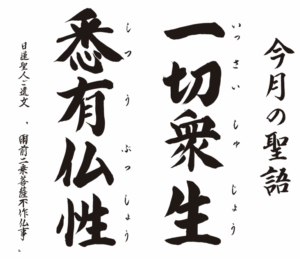 今月の聖語
一切衆生
いっさいしゅじょう
悉有仏性
しつうぶっしょう
日蓮聖人ご遺文 『爾前二乗菩薩不作仏事』